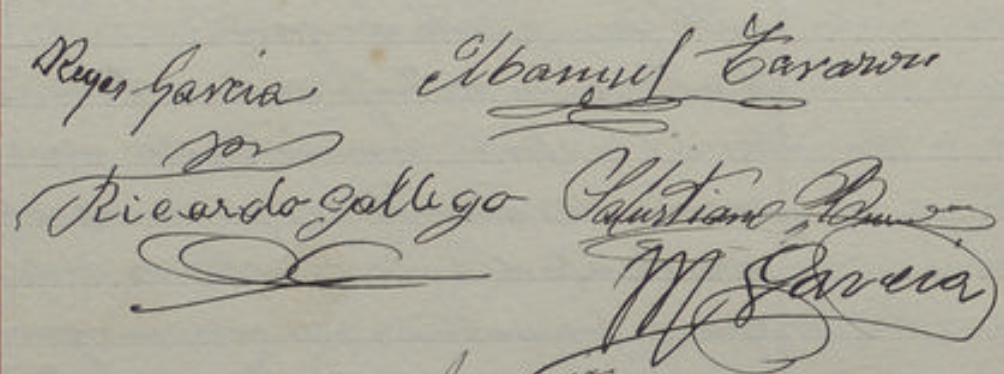 Reyes Garcia
Manuel
Ricardo Gallego
Salustiano
M Garcia